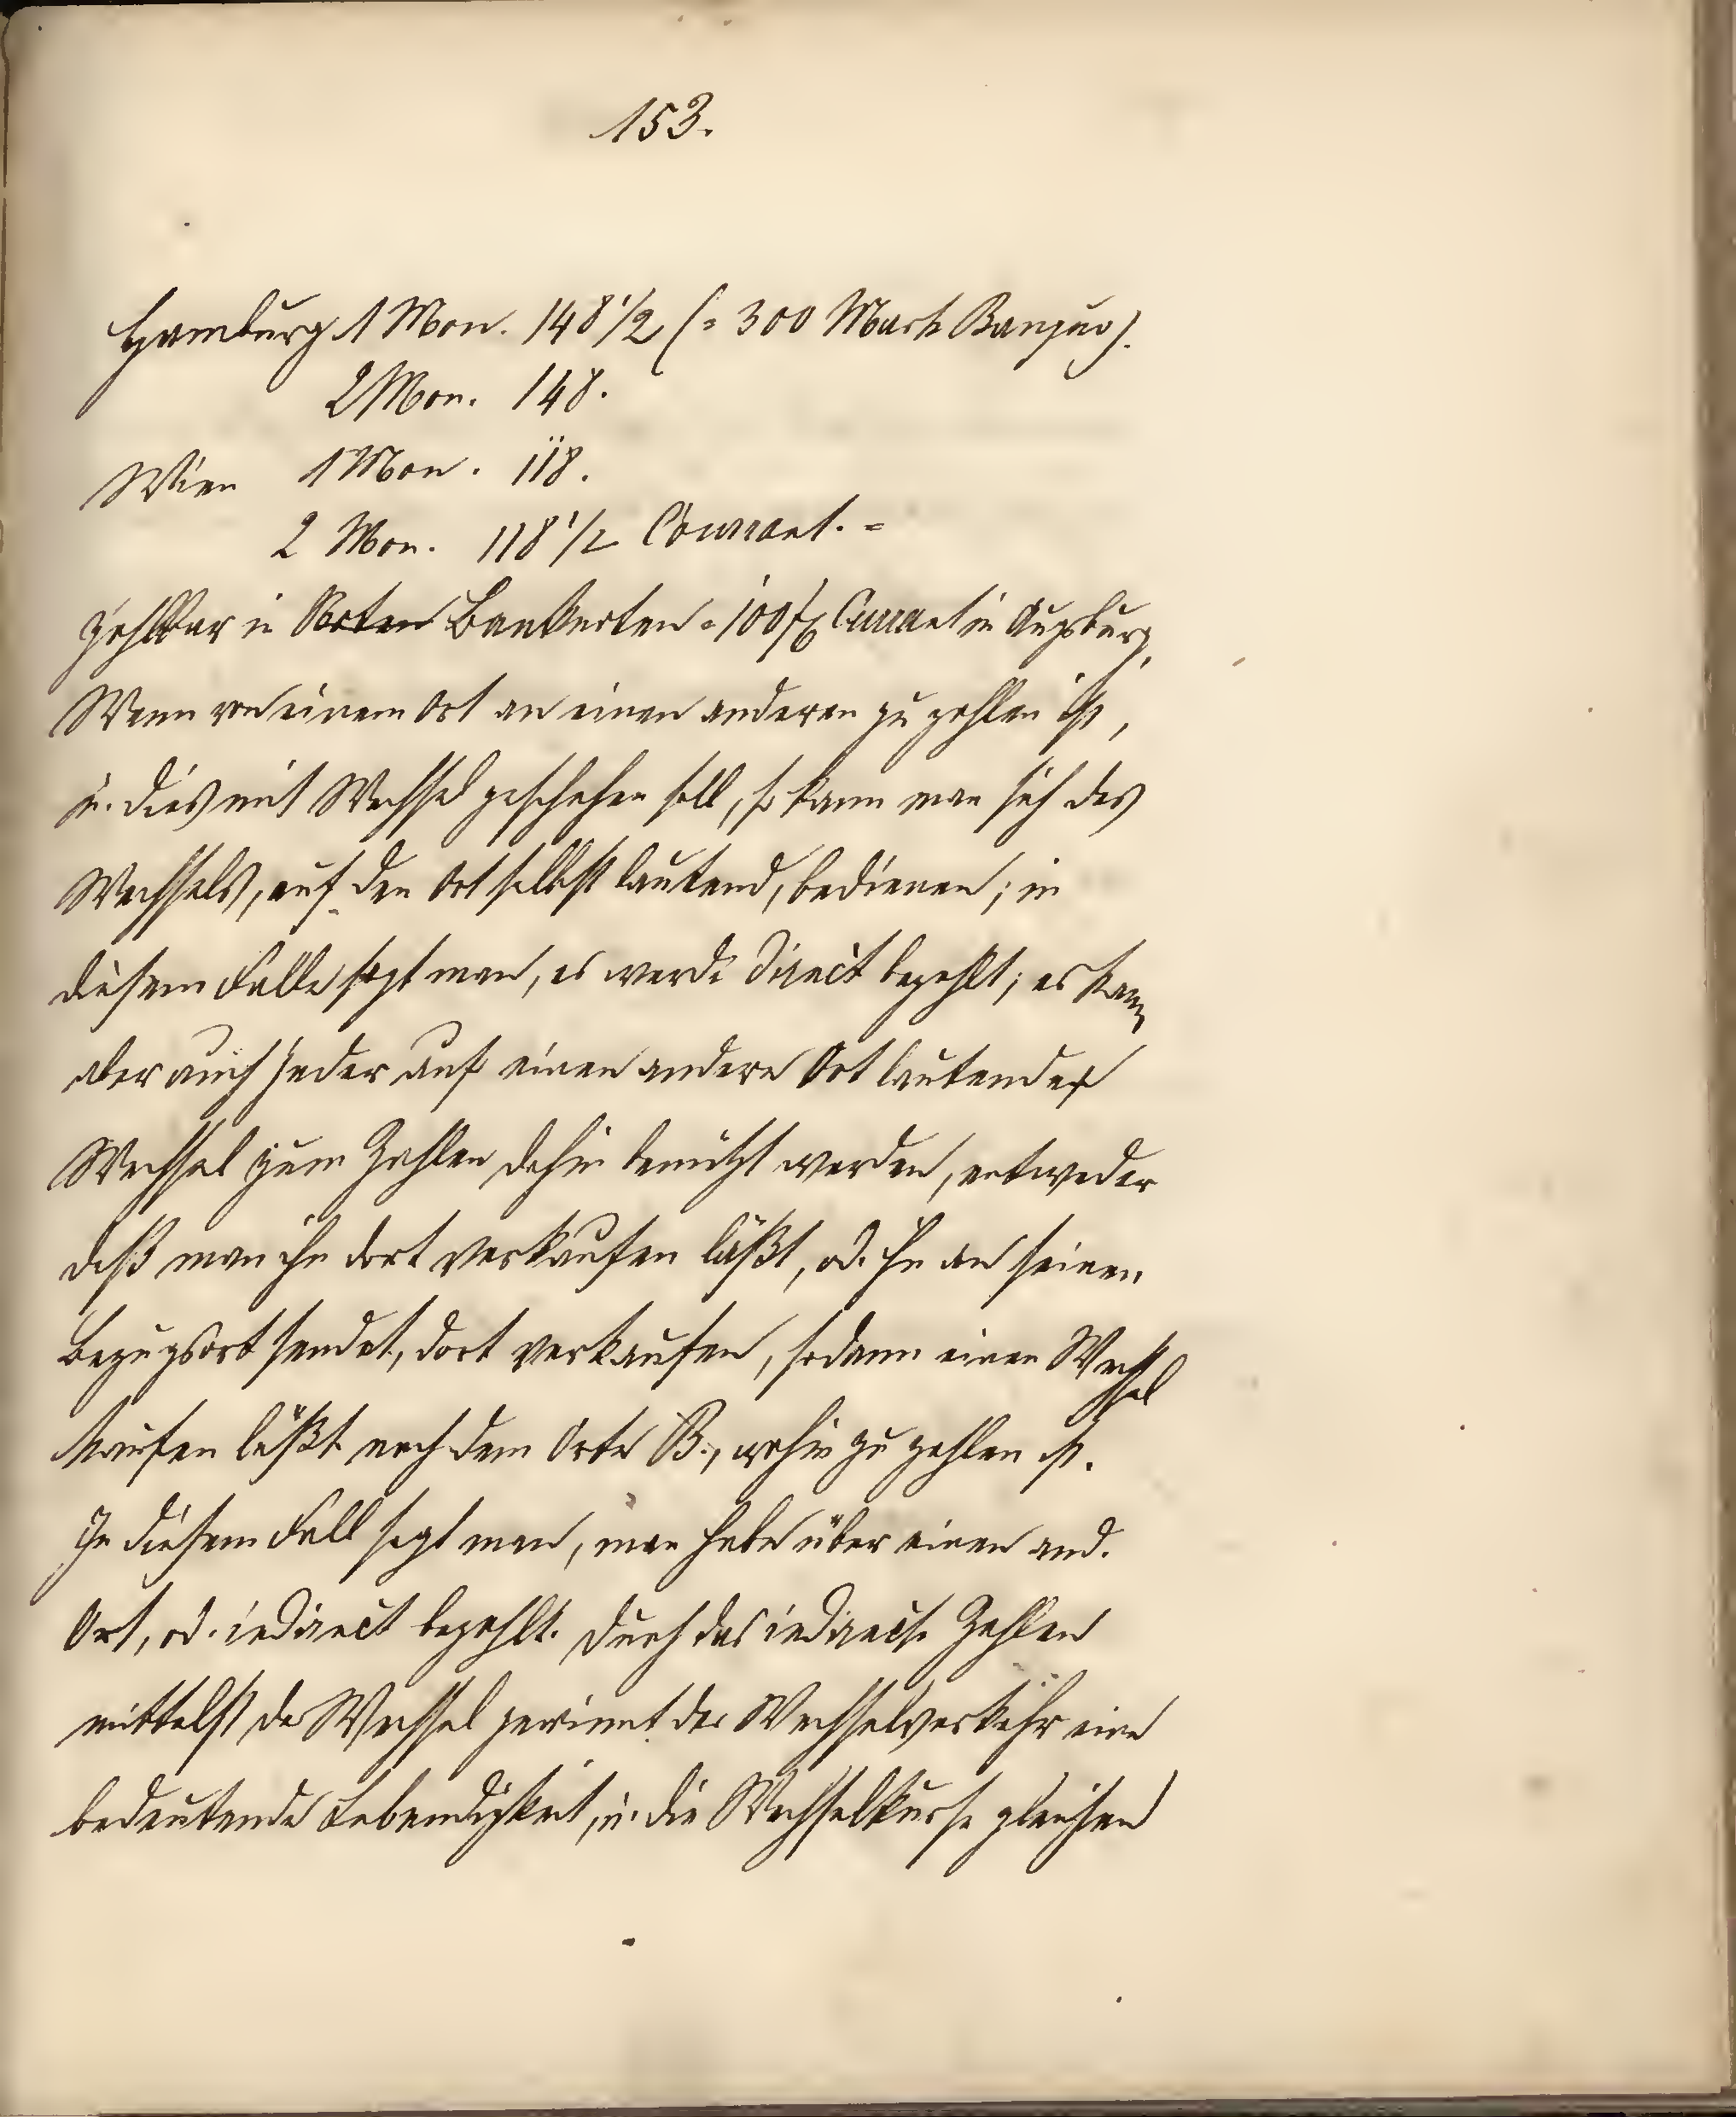 153.
Hamburg 1 Mon. 148 1/2 (= 300 Mark Banquo).
2 Mon. 148.
Wien 1 Mon. 118.
2 Mon. 118 1/2 Courant. =
zahlbar in Noten Banknoten = 100 fl Current in Augsburg.
Wenn von einem Ort an einen anderen zu zahlen ist,
u. dies mit Wechsel geschehen soll, so kann man sich des
Wechsels, auf den Ort selbst lautend, bedienen; in
diesem Falle sagt man, es werde direct bezahlt; es kann
aber auch jeder auf einen andern Ort lautender
Wechsel zum Zahlen dahin benützt werden, entweder
daß man ihn dort verkaufen läßt, od. ihn an seinen
Bezugsort sendet, dort verkaufen, sodann einen Wechsel
kaufen läßt nach dem Orte B., wohin zu zahlen ist.
In diesem Fall sagt man, man habe über einen and.
Ort, od. indirect bezahlt. Durch das indirecte Zahlen
mittelst der Wechsel gewinnt der Wechselverkehr eine
bedeutende Lebendigkeit, u. die Wechselkurse gleichen